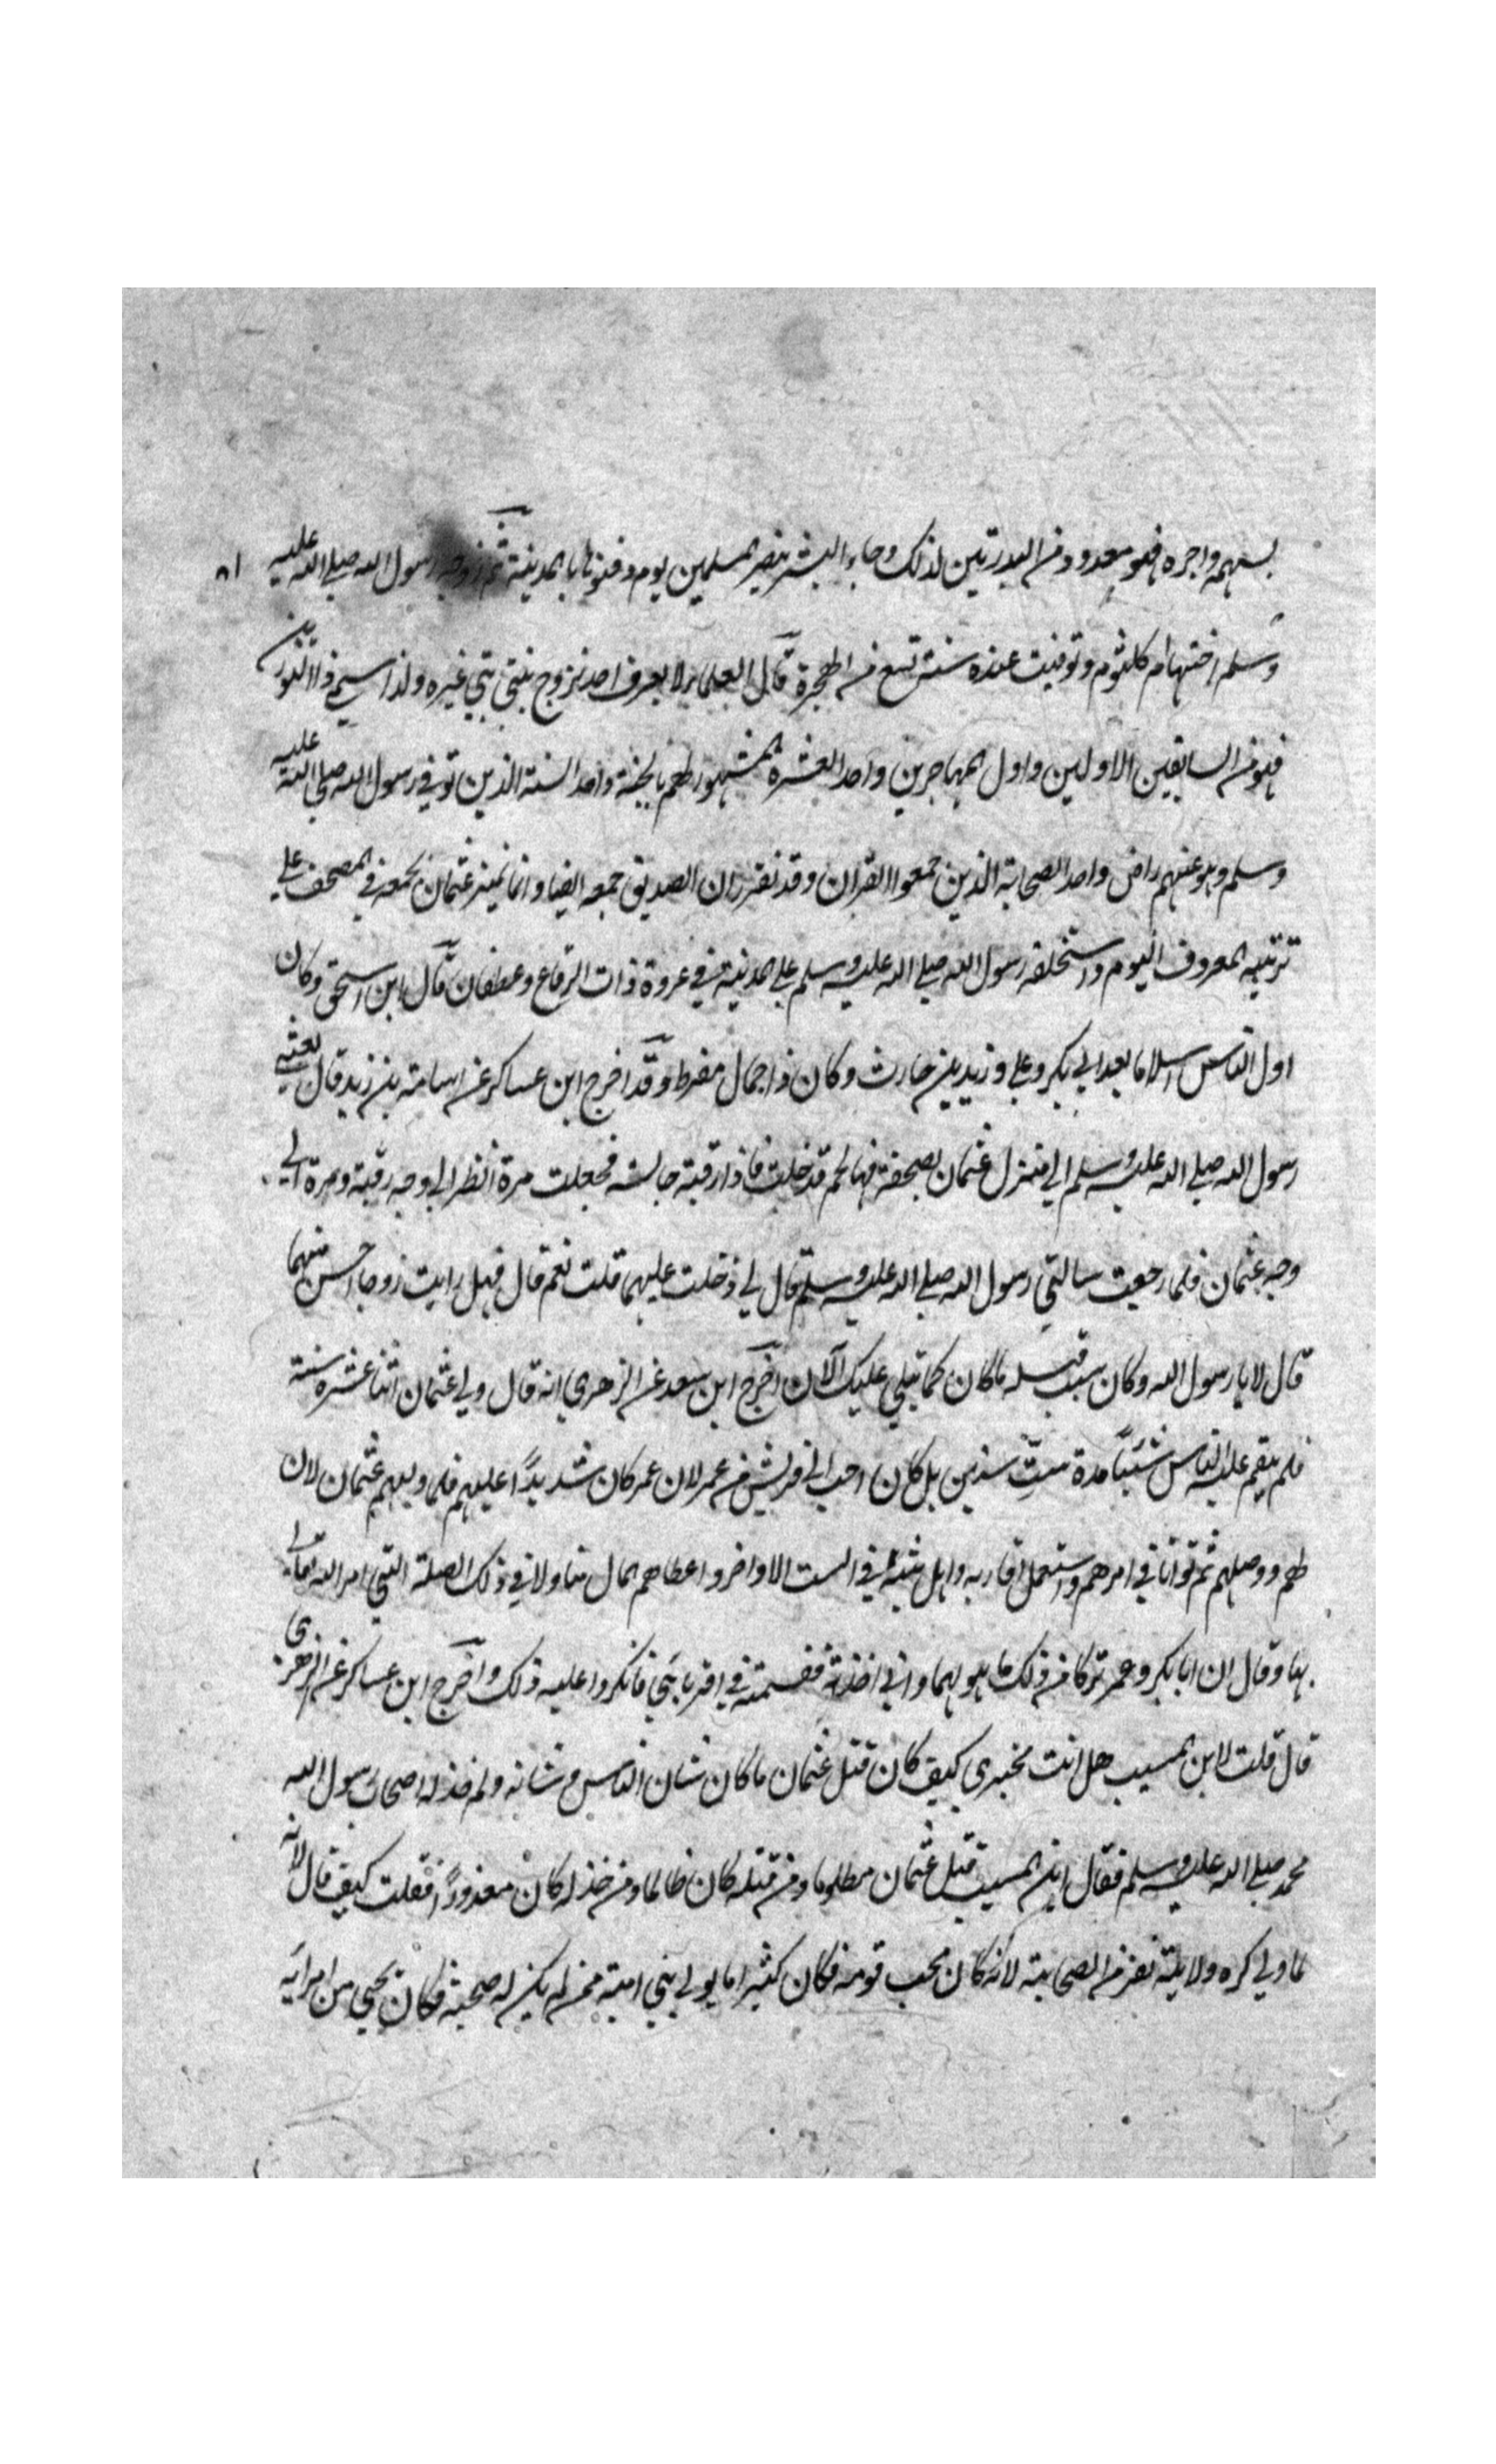 بسهمه واجره فهو معدود من البدريين لذلك وجاء البشير بنصر المسلمين يوم دفنوها بالمدينة ثم زوجه رسول الله صلى الله عليه
وسلم اختها ام كلثوم وتوفيت عنده سنة تسع من الهجرة قال العلماء لا يعرف احد تزوج بنتي نبي غيره ولذا سمي ذا النورين
فهو من السابقين الاولين واول المهاجرين واحد العشرة المشهود لهم بالجنة واحد الستة الذين توفي رسول الله صلى الله عليه
وسلم وهو عنهم راض واحد الصحابة الذين جمعوا القران وقد تقرر ان الصديق جمعه ايضا وانما تميز عثمان بجمعه في المصحف على
ترتيبه المعروف اليوم واستخلفه رسول الله صلى الله عليه وسلم على المدينة في غزوة ذات الرقاع وغطفان قال ابن اسحق وكان
اول الناس اسلاما بعد ابي بكر وعلي وزيد بن حارث وكان ذا جمال مفرط وقد اخرج ابن عساكر عن اسامة بن زيد قال بعثني
رسول الله صلى الله عليه وسلم الى منزل عثمان بصحفة فيها لحم فدخلت فاذا رقية جالسة فجعلت مرة انظر الى وجه رقية ومرة الى
وجه عثمان فلما رجعت سالني رسول الله صلى الله عليه وسلم قال لي دخلت عليهما قلت نعم قال فهل رايت زوجا احسن منهما
قال لا يا رسول الله وكان سبب قتله ما كان كما تبلى عليك الآن اخرج ابن سعد عن الزهري انه قال ولي عثمان اثنا عشره سنة
فلم ينقم عليه الناس شيئا مدة ست سنين بل كان احب الى قريش من عمر لان عمر كان شديدا عليهم فلما وليهم عثمان لان
لهم ووصلهم ثم توانا في امرهم واستعمل اقاربه واهل بيته في الست الاواخر واعطاهم المال متاولا في ذلك الصلة التي امر الله تعالى
بها وقال ان ابا بكر وعمر تركا من ذلك ما هو لهما واني اخذته فقسمته في اقربائي فانكروا عليه ذلك واخرج ابن عساكر عن الزهري
قال قلت لابن المسيب هل انت مخبري كيف كان قتل عثمان ما كان شان الناس وشانه ولم خذله اصحاب رسول الله
محمد صلى الله عليه وسلم فقال ابن المسيب قتل عثمان مظلوما ومن قتله كان ظالما ومن خذله كان معذورا فقلت كيف قال لانه
لما ولي كره ولايته نفر من الصحابة لانه كان يحب قومه فكان كثيرا ما يولي بني امية ممن لم يكن له صحبة فكان يجي من امرائه